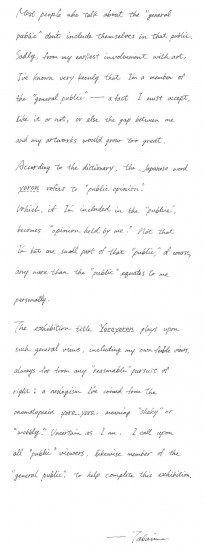 Most people who talk about the "general
public" don't include themselves in that public.
Sadly, from my earliest involvement with art,
I've known very keenly that I'm a member of
the "general public" — a fact I must accept,
like it or not, or else the gap between me
and my artworks would grow too great.
According to the dictionary, the Japanese word
yoron refers to "public opinion".
Which, if I'm included in the "public",
becomes "opinion held by me." Not that
I'm but one small part of that "public," of course,
any more than the "public" equates to me
personally.
The exhibition title Yoroyoron plays upon
such general views, including my own feeble views,
always far from any "reasonable" pursuit of
right; a neologism I've coined from the
onomatopoeia yoro-yoro meaning "shaky" or
"wobbly." Uncertain as I am, I call upon
all "public" viewers, likewise member of the
"general public", to help complete this exhibition.
— Tabaimo